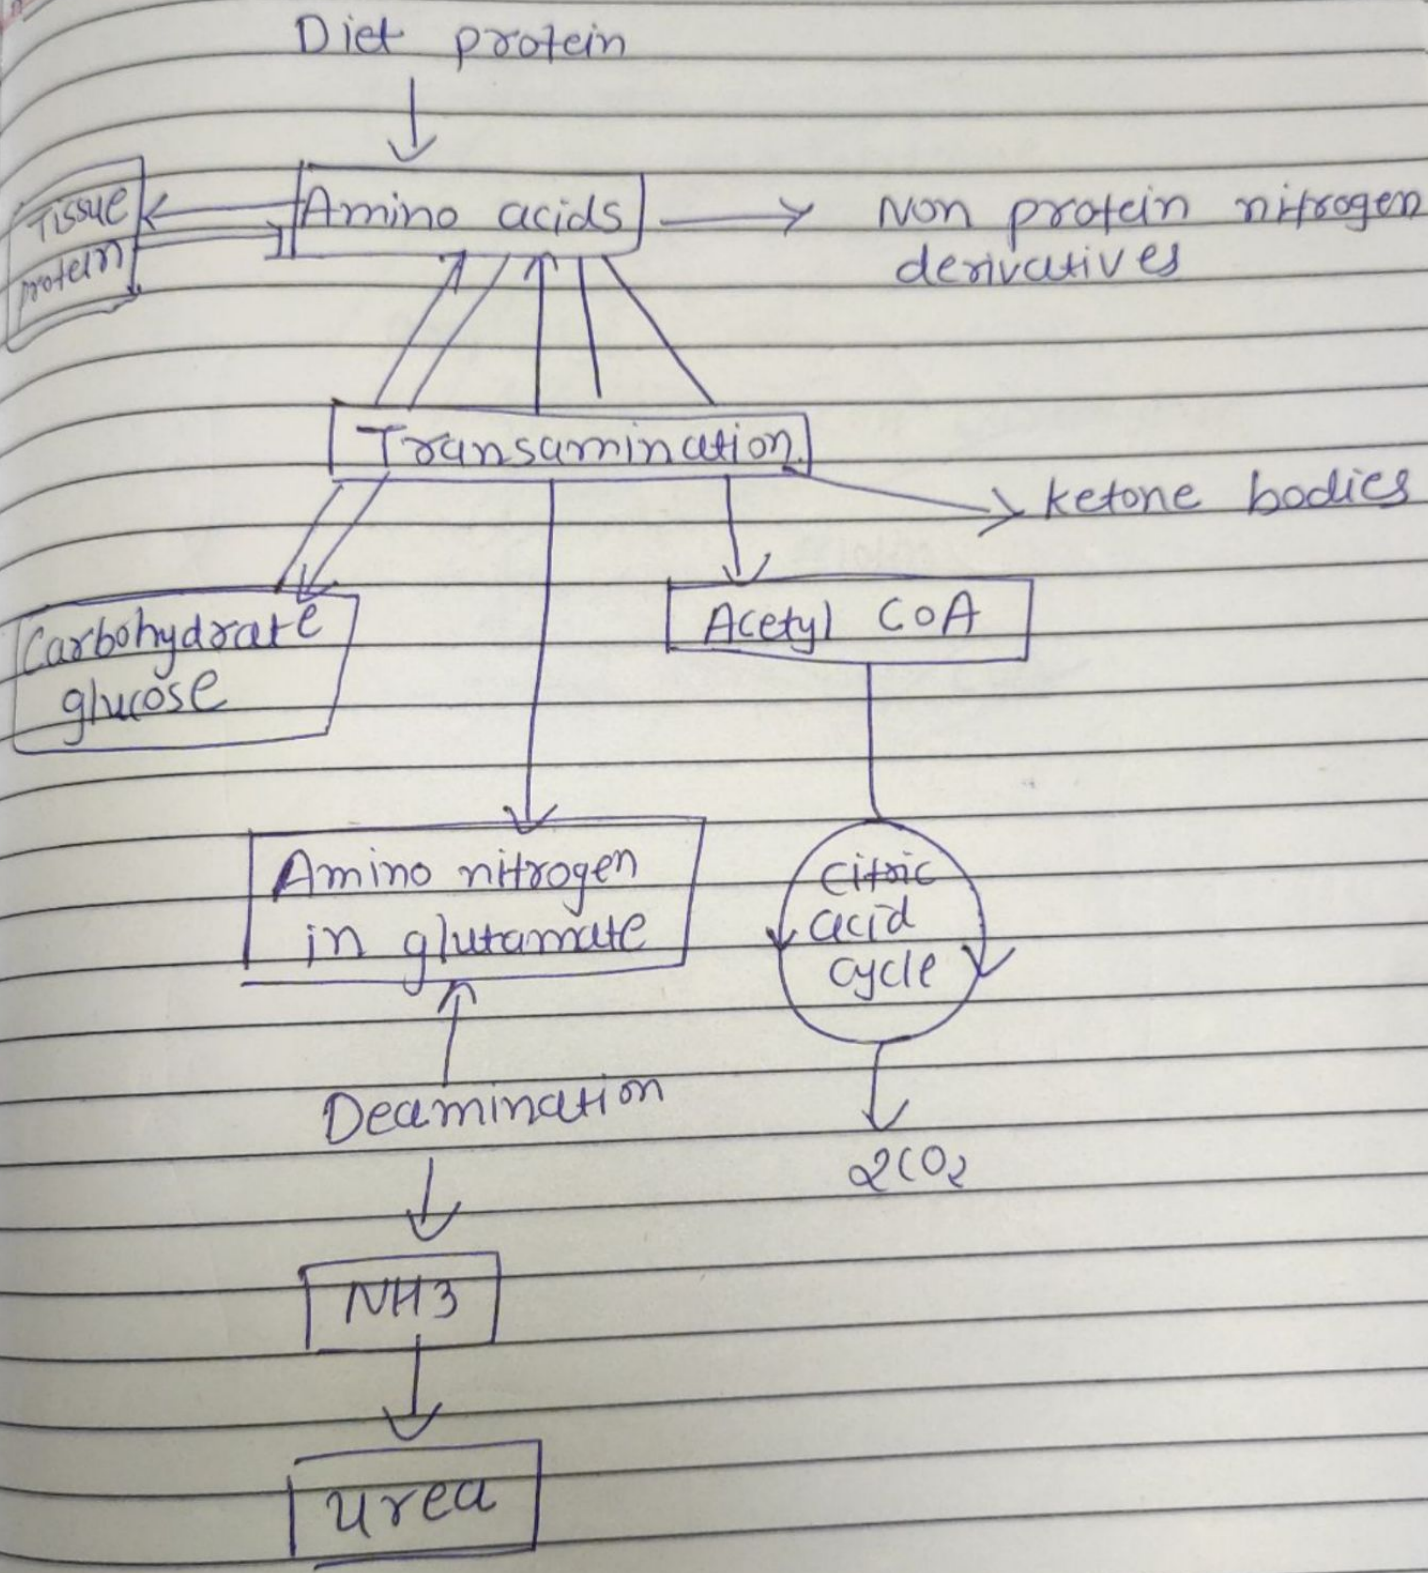 Diet protein
Tissue
protein
Amino acids
Non protein nitrogen
derivatives
Transamination.
Ketone bodies
Carbohydrate
glucose
Acetyl CoA
Amino nitrogen
in glutamate
Citric
acid
cycle
Deamination
2CO2
NH3
Urea